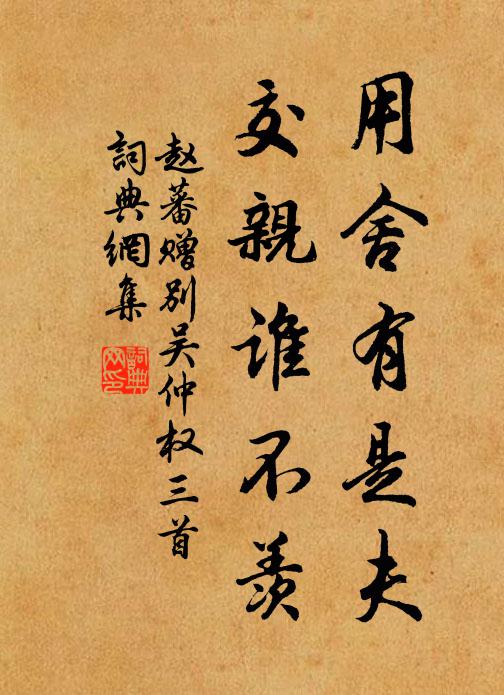 用舍有是夫
交親谁不羨
赵蕃赠别吴仲权三首
詞典網集
詞典網印